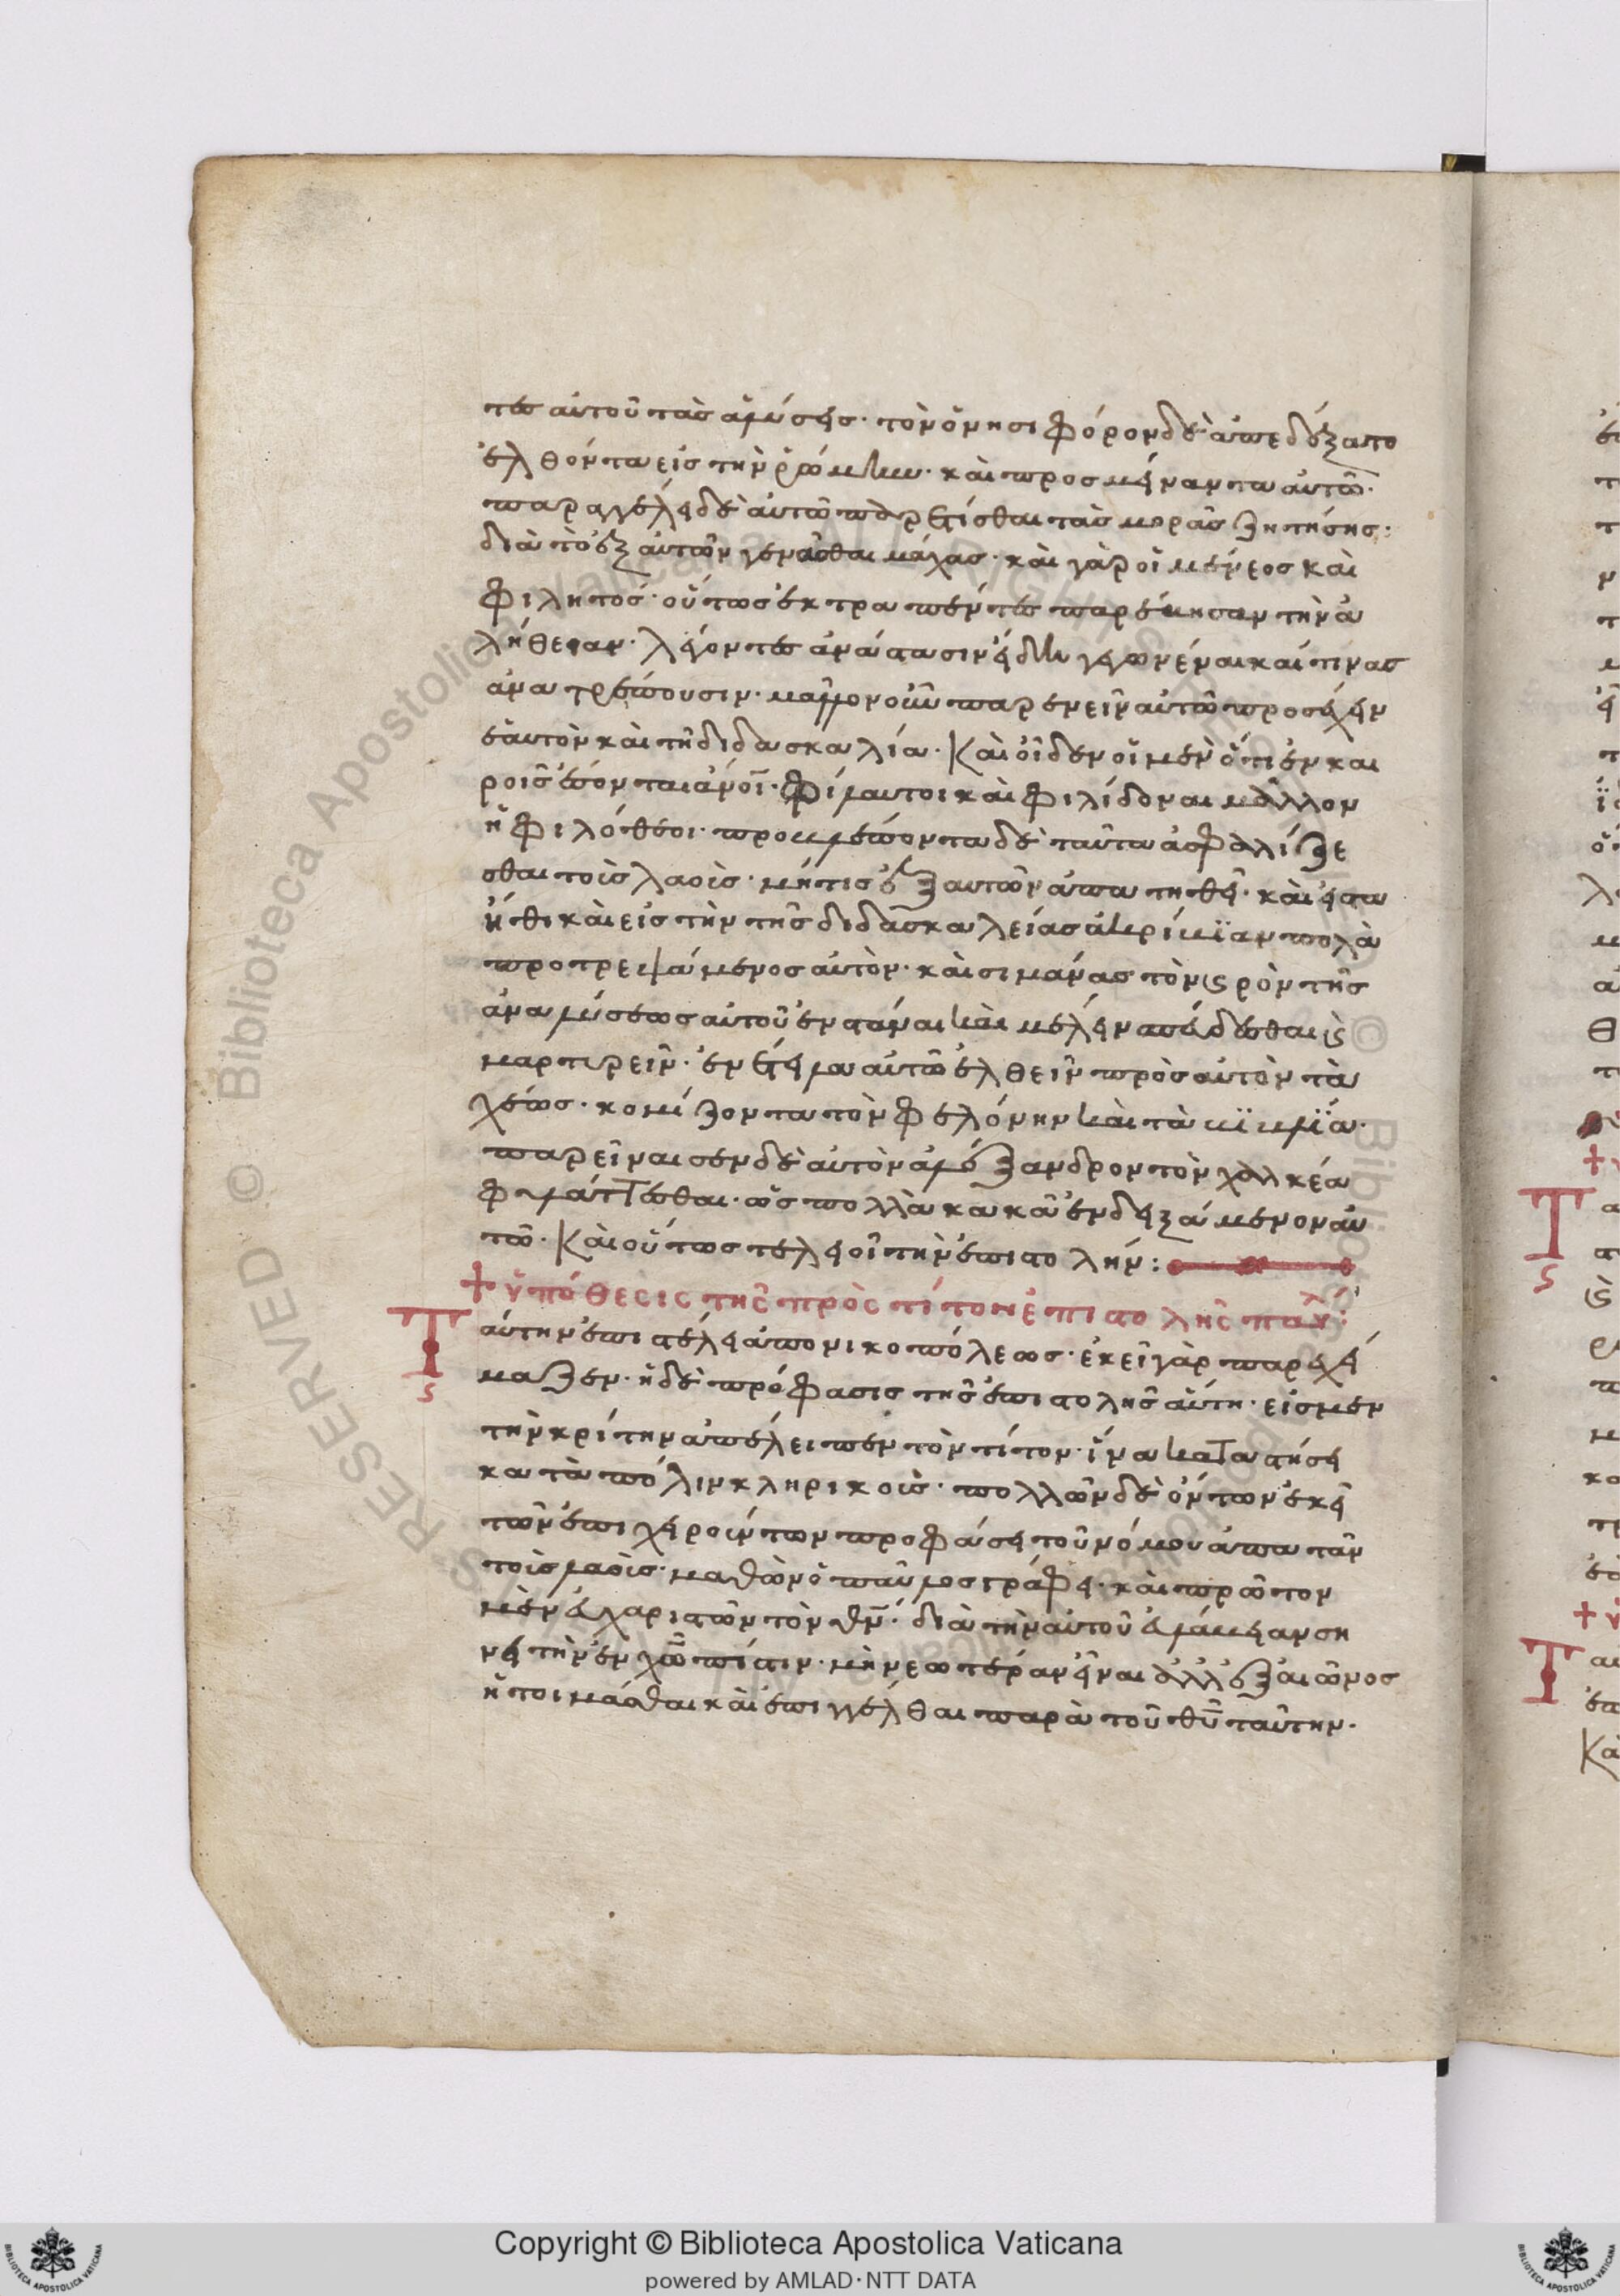 τες αὐτοῦ τὰς ἀλύσεις· τὸν ὀνησιφόρον δὲ ἀπεδέξατο
ἐλθόντα εἰς τὴν ῥώμην· καὶ προσμείναντα αὐτῶ·
παραγγέλει δὲ αὐτῶ παρετίσθαι τὰς μορὰς ζητήσης·
διὰ τὸ ἐξ αὐτῶν γενέσθαι μάχας· καὶ γὰρ οἱ μένεος καὶ
φιλητός· οὕτως ἐκτραπέντες παρέκησαν τὴν ἀ
λήθειαν· λέγοντες ἀνάστασιν ἤδην γεγωνέναι καί τινας
ἀνατρέπουσιν· μᾶλλον οὖν παρενεῖν αὐτῶ προσέχειν
ἑαυτὸν καὶ τῆ διδασκαλία· Καὶ οἶδεν οἱ μὲν ὅτι ἐν και
ροῖς ἔσονται ἄνοι· φίλαυτοι καὶ φιλίδοναι μᾶλλον
ἢ φιλόθεοι· προβλέποντα δὲ ταῦτα ἀσφαλίζε
σθαι τοῖς λαοῖς· μήτις ἐξ αὐτῶν ἀπατηθῆ· καὶ
εἰς τὴν τῆς διδασκαλείας ἀκρίβϊαν πολὰ
προτρεψάμενος αὐτὸν· καὶ σιμάνας τὸν καιρὸν τῆς
ἀναλύσεως αὐτοῦ ἐνστάναι καὶ μέλειν σπένδεσθαι καὶ
μαρτυρεῖν· ἐνετείλα αὐτῶ ἐλθεῖν πρὸς αὐτὸν τα
χέως· κομίζοντα τὸν φελόνην καὶ τὰ βϊβλϊα·
παρεῖναισεν δὲ αὐτὸν ἀλέξανδρον τὸν χαλκέα
φυλάττεσθαι· ὡς πολλὰ κακὰ ἐνδειξάμενον αὐ
τῶ· Καὶ οὕτως τελειοῖ τὴν ἐπιστολήν:
+ ὑπόθεσις τῆς πρὸς τίτον ἐπιστολῆς παύλ:
Ταύτην ἐπιστέλει ἀπο νικοπόλεως· ἐκεῖ γὰρ παρεχεί
μαζεν· ἡ δὲ πρόφασις τῆς ἐπιστολῆς αὕτη· εἰς μὲν
τὴν κρίτην ἀπέλειπεν τὸν τίτον· ἵνα καταστήσει
κατὰ πόλιν κληρικοὶς· πολλῶν δὲ ὄντων ἐκεῖ
τῶν ἐπιχειρούντων προφάσει τοῦ νόμου ἀπατᾶν
τοῖς λαοὶς· μαθὼν ὁ παῦλος γράφει· καὶ πρῶτον
μὲν εὐχαριστῶν τὸν θν· διὰ τὴν αὐτοῦ εὐλάβειαν ση
νει τὴν ἐν χῶ πίστιν· μὴ νεωτέραν εἶναι ἀλλ' ἐξ αἰῶνος
ἡτοιμάσθαι καὶ ἐπιγγέλθαι παρὰ τοῦ θυ ταύτην·
Copyright © Biblioteca Apostolica Vaticana
powered by AMLAD·NTT DATA